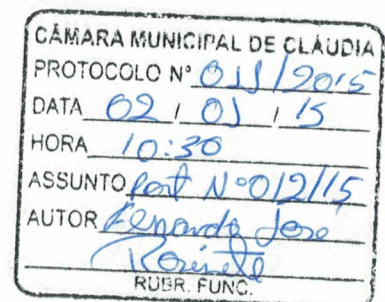 CÂMARA MUNICIPAL DE CLÁUDIA
PROTOCOLO Nº 011/2015
DATA 02 / 01 / 15
HORA 10:30
ASSUNTO Port Nº 012/15
AUTOR Fernando Jose
RUBR. FUNC.